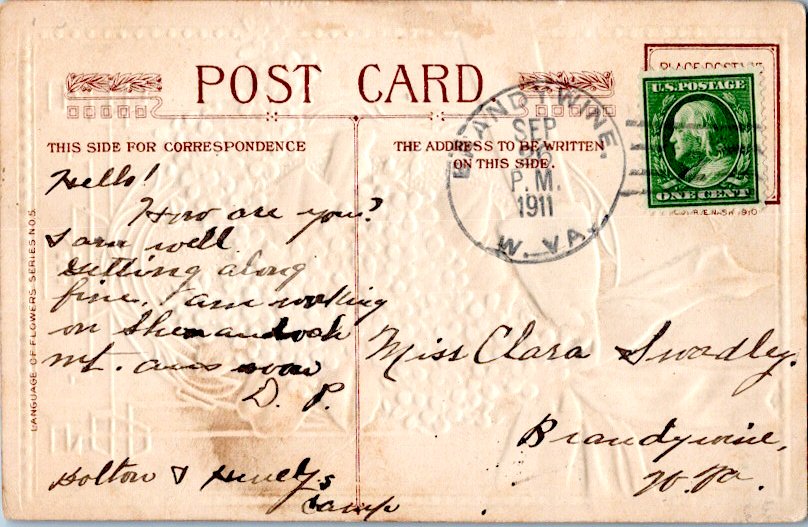 POST CARD
PLACE POSTAGE
U.S. POSTAGE
ONE CENT
BRANDYWINE,
SEP
P.M.
1911
W. VA.
THIS SIDE FOR CORRESPONDENCE
THE ADDRESS TO BE WRITTEN
ON THIS SIDE.
Hello!
How are you?
I am well
getting along
fine, I am working
on Shenandoah
mt. now
D. P.
Holton &
Camp
Miss Clara Swadley.
Brandywine,
W. Va.
LANGUAGE OF FLOWERS SERIES NO. 5.
NASH 1910